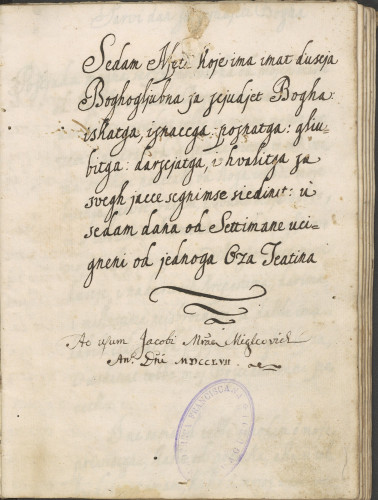 Sedam Meti koje ima imat duscja
Boghogljubna za zejudjet Bogha:
iskatga, iznaccga: poznatga: gliu-
bitga: darzejatga, i hvalitga za
svegh jacce segnimse siedinit: ù
sedam dana od Settimane uci-
gneni od jednoga Oza Teatina
Ac usum Jacobi Miglcovich
An: Dñi MDCCLVII